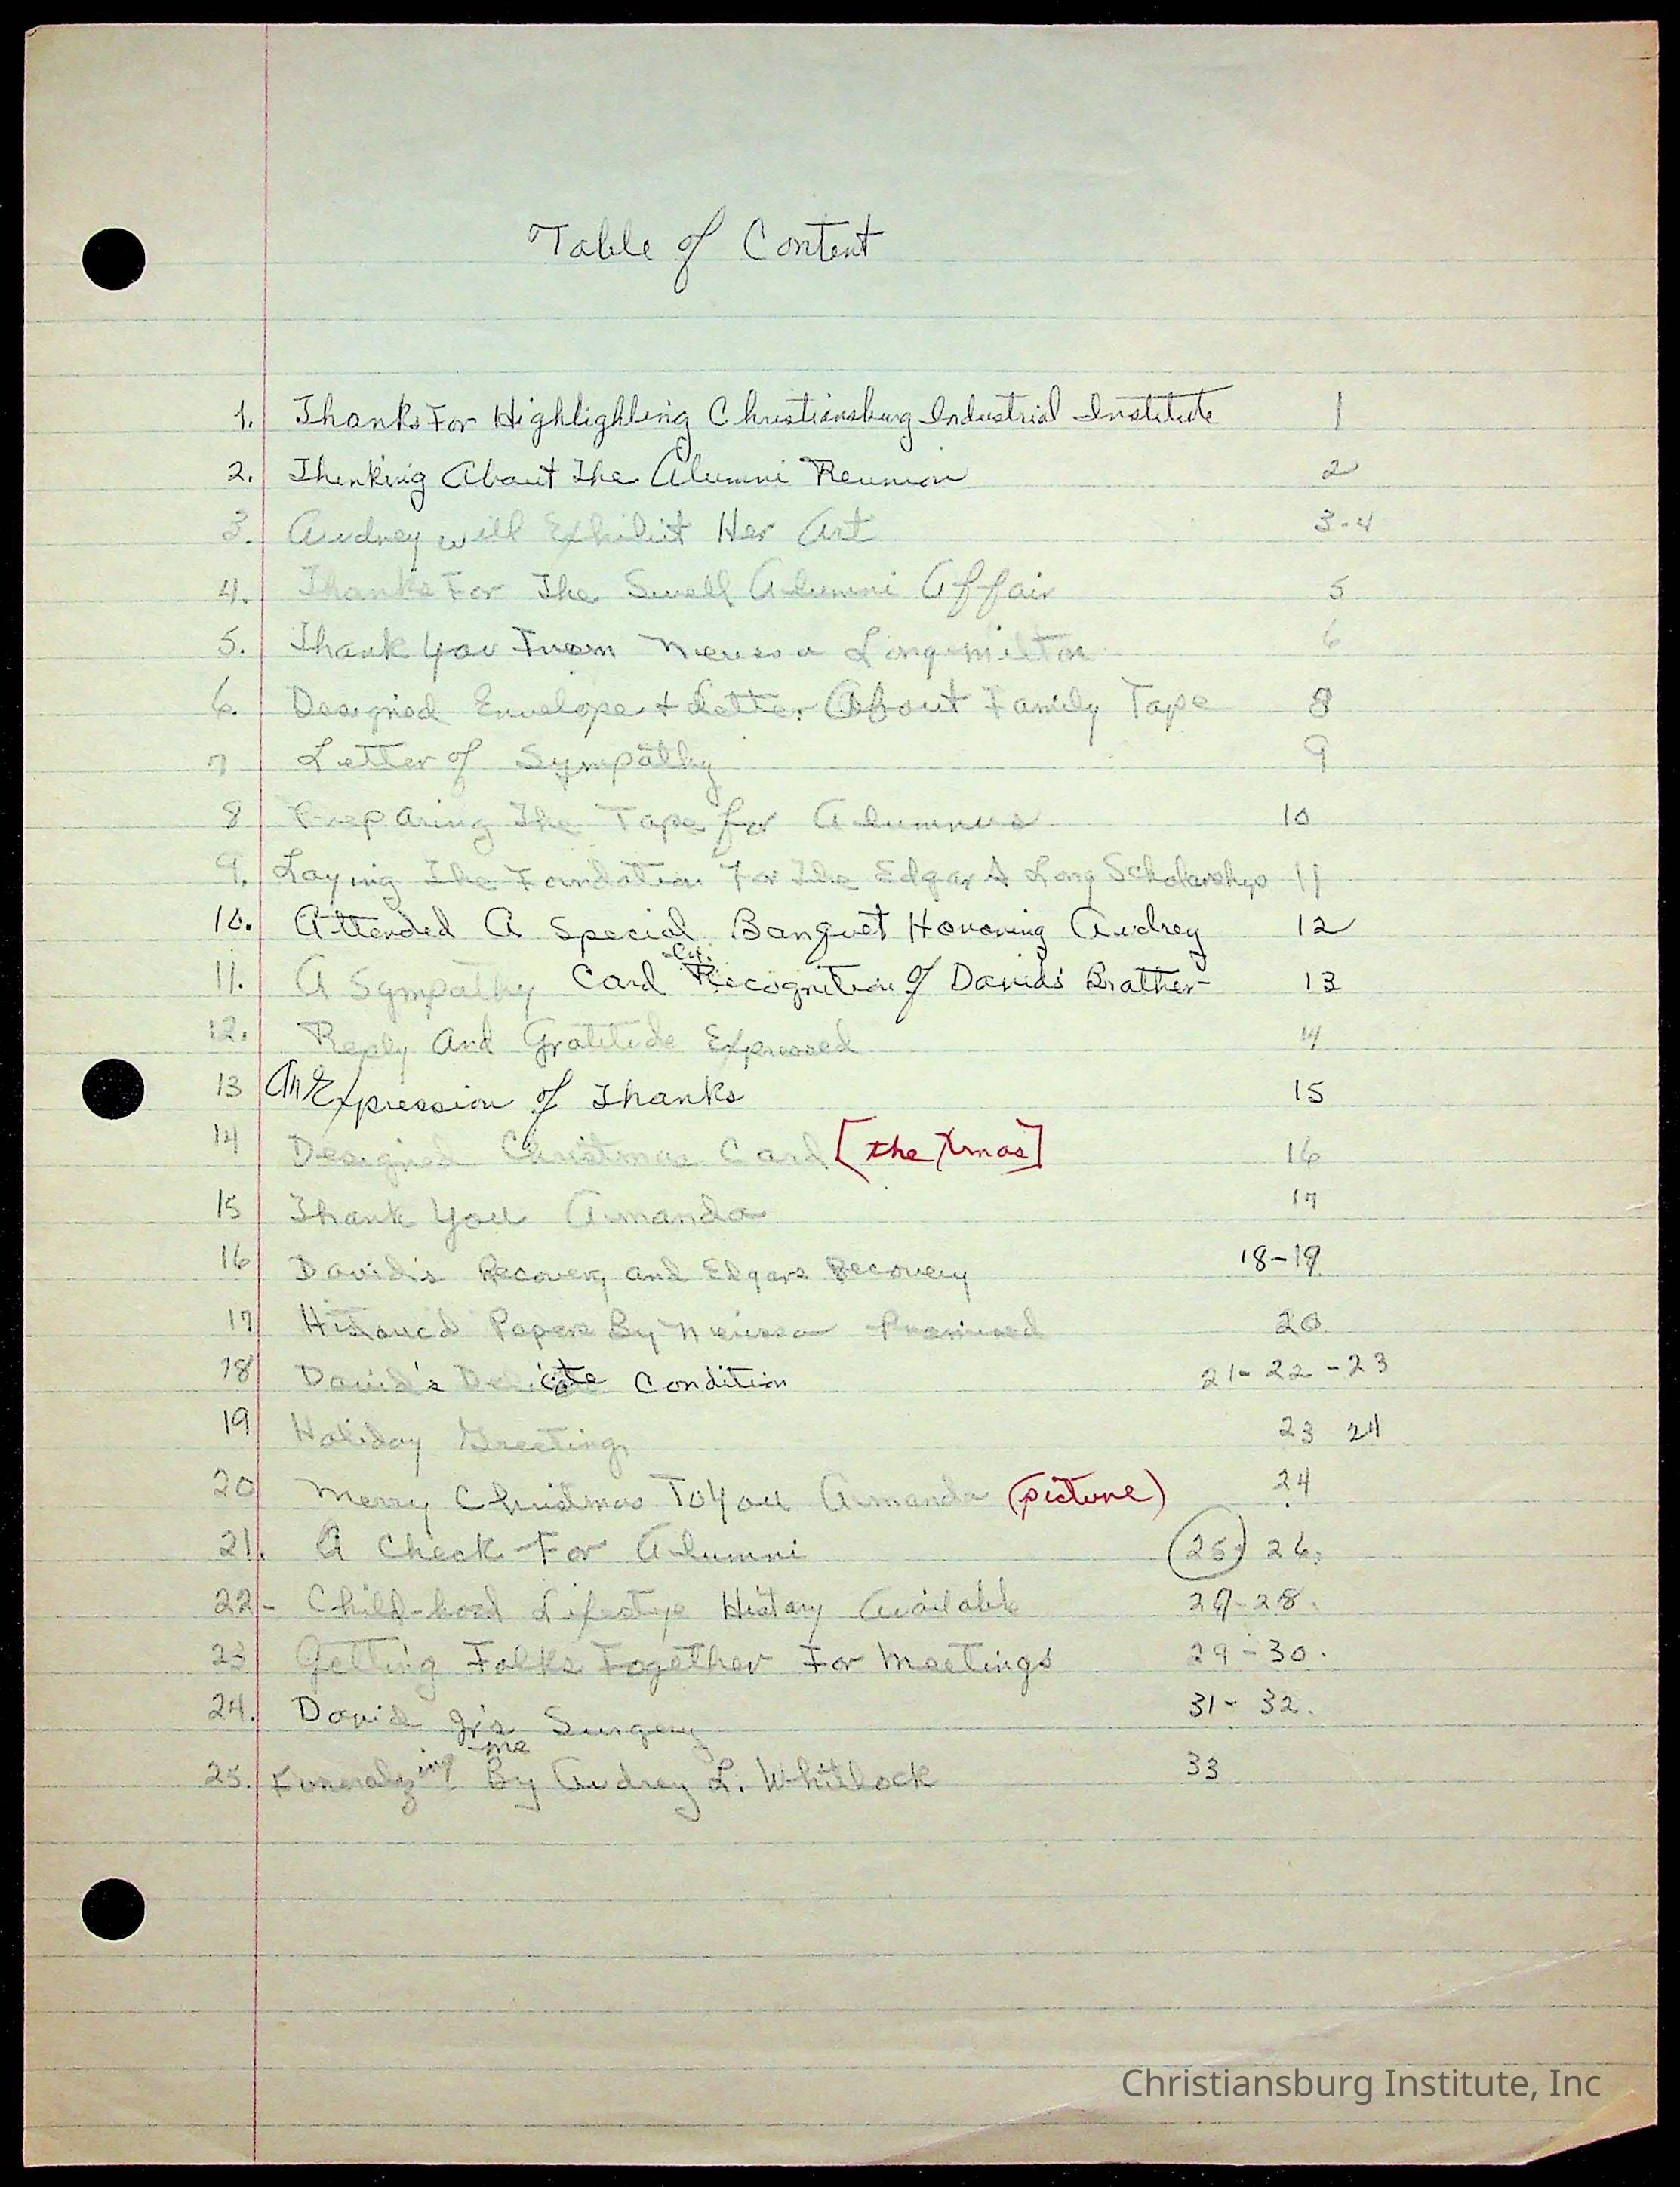 Table of Content
1. Thanks For Highlighting Christiansburg Industrial Institute 1
2. Thinking About The Alumni Reunion 2
3. Audrey will Exhibit Her Art 3-4
4. Thanks For The Swell Alumni Affair 5
5. Thank You From Nerissa Long Milton 6
6. Designed Envelope + Letter About Family Tape 8
7 Letter of Sympathy 9
8 Preparing The Tape for Alumnus 10
9. Laying The Foundation For The Edgar A Long Scholarship 11
10. Attended A Special Banquet Honoring Audrey 12
11. A Sympathy Card Recognition of David's Brother 13
12. Reply And Gratitude Expressed 14
13 An Expression of Thanks 15
14 Designed Christmas Card [the Xmas] 16
15 Thank You Armanda 17
16 David's Recovery and Edgars Recovery 18-19
17 Papers By Nerissa Promised 20
18 David's Delicate Condition 21-22-23
19 Holiday Greetings 23 24
20 Merry Christmas To You Armanda (picture) 24
21. A Check For Alumni 25 26.
22- Child-hood History Available 27-28.
23 Getting Folks Together For Meetings 29-30.
24. David Jr's Surgery 31-32.
me
25. By Audrey L. Whitlock 33
Christiansburg Institute, Inc